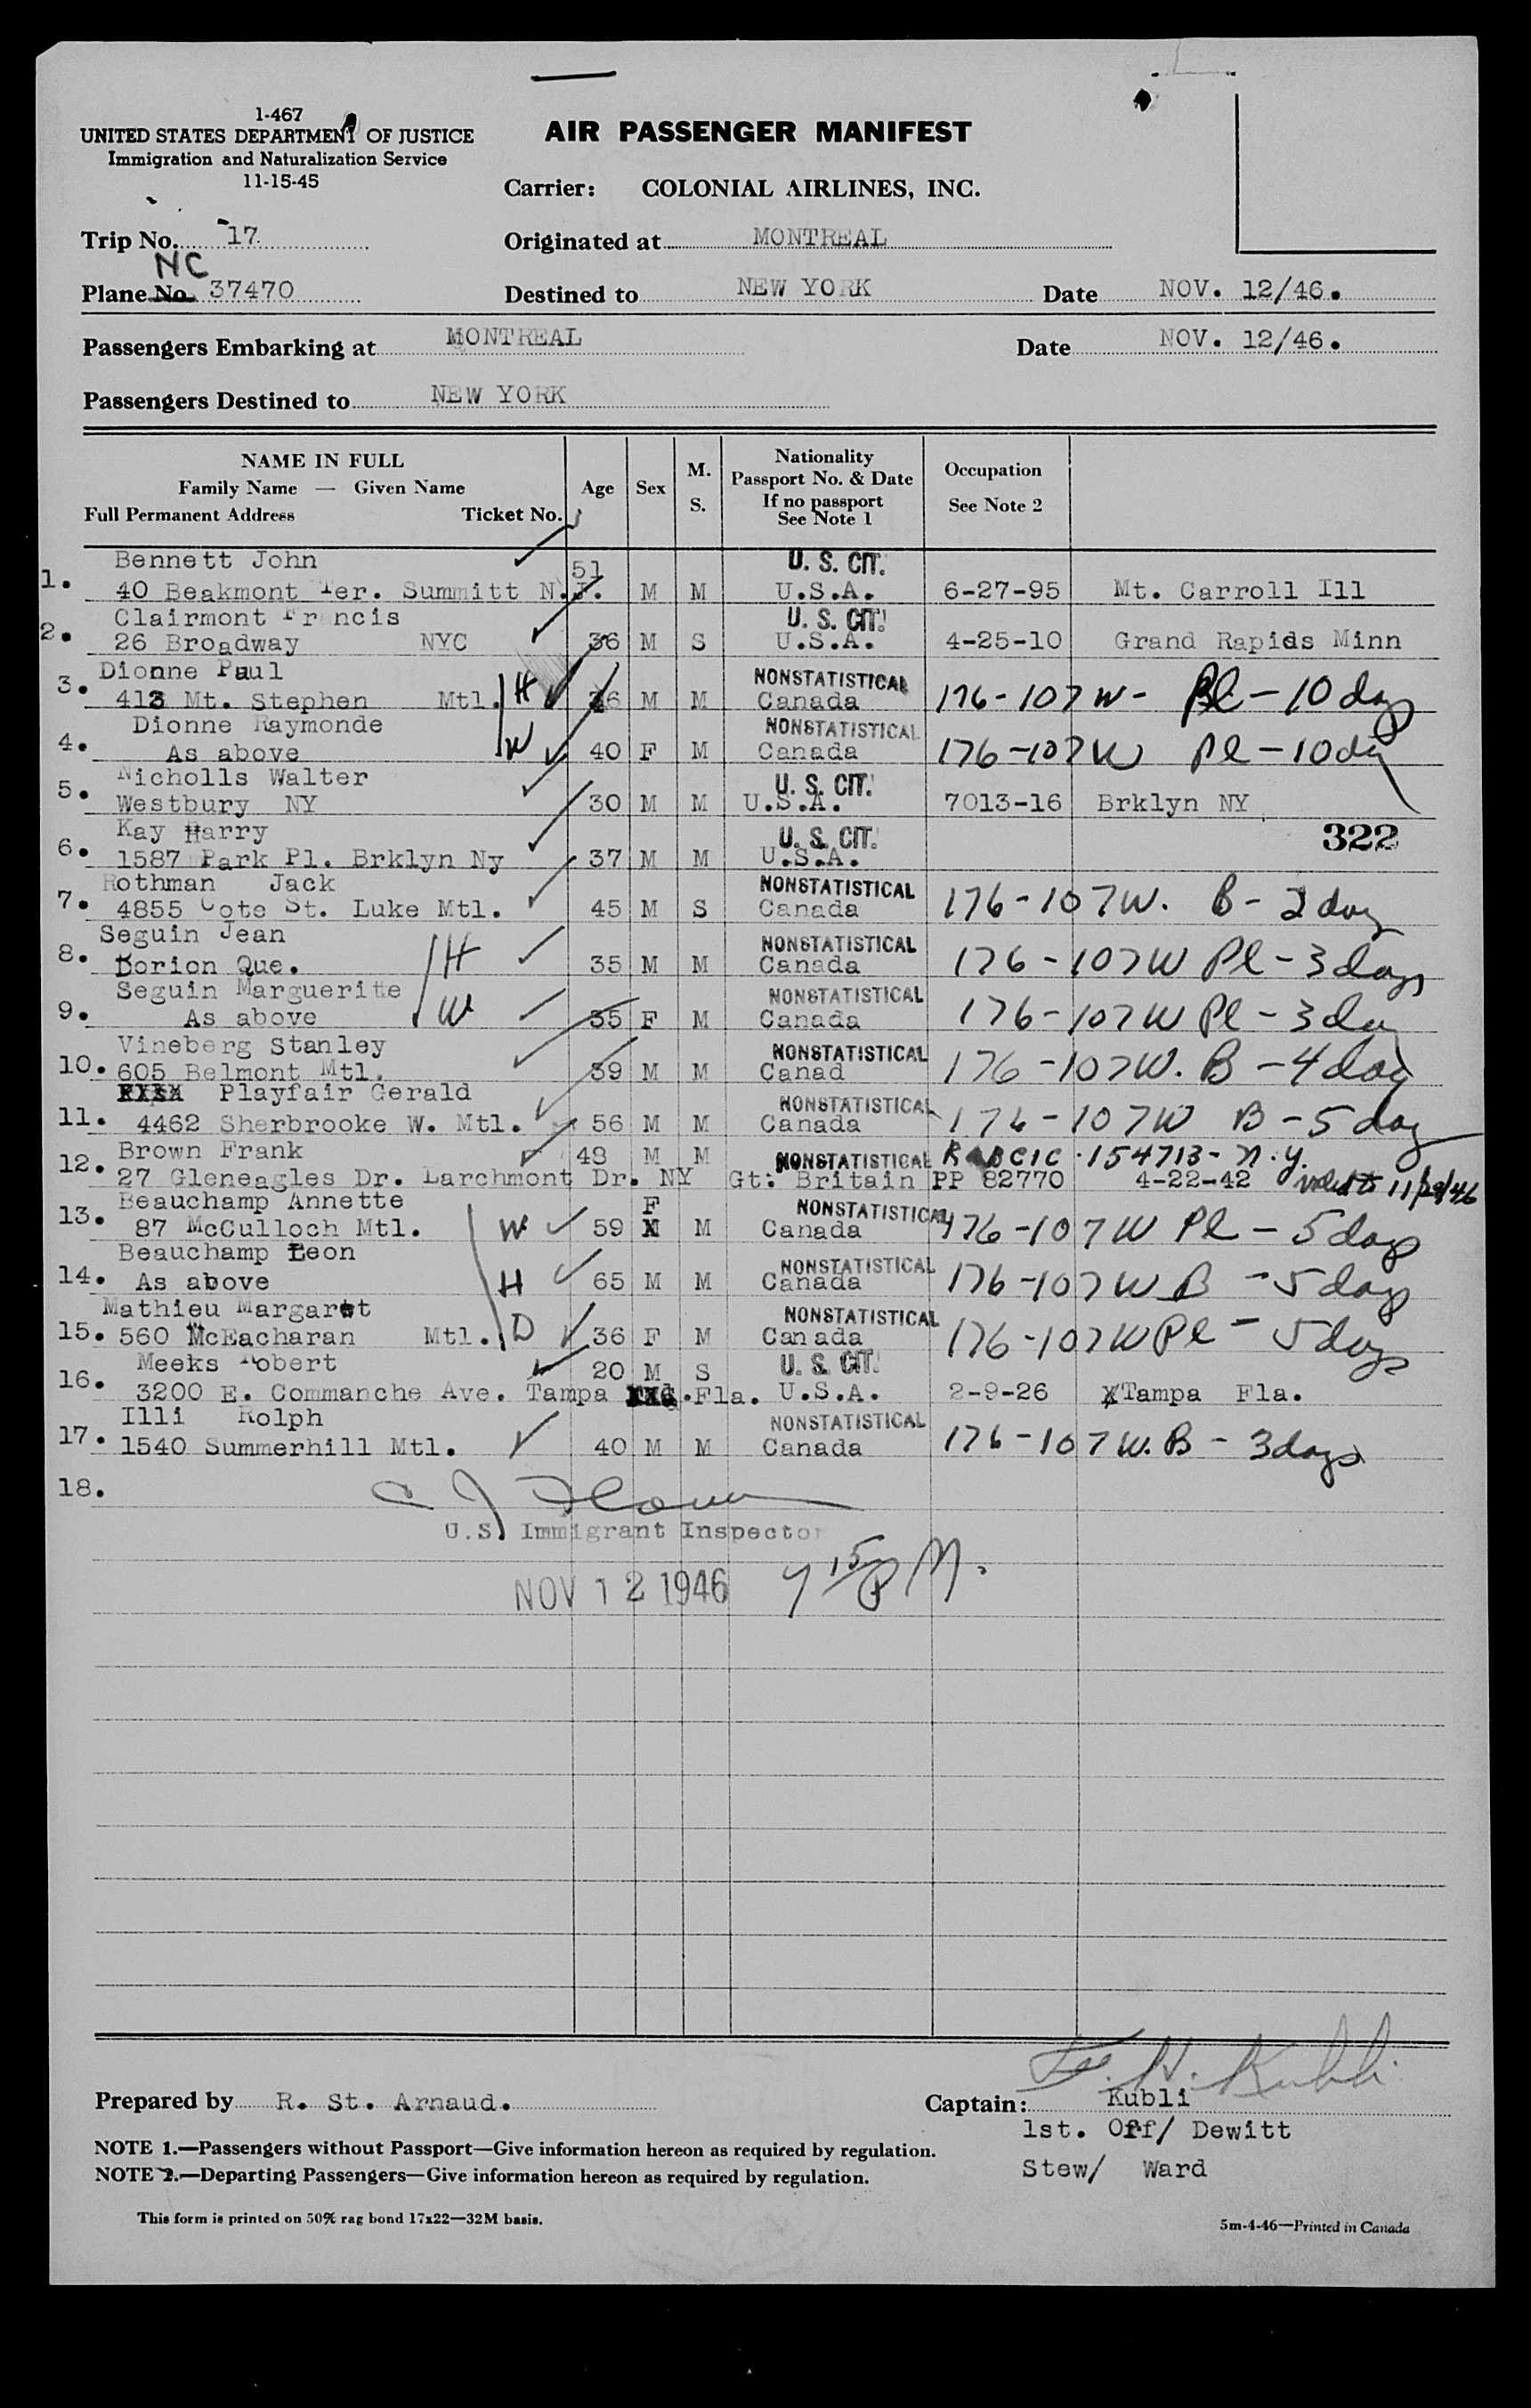 1-467
UNITED STATES DEPARTMENT OF JUSTICE
Immigration and Naturalization Service
11-15-45
AIR PASSENGER MANIFEST
Carrier: COLONIAL AIRLINES, INC.
Trip No. 17
Originated at MONTREAL
NC
Plane No. 37470
Destined to NEW YORK
Date NOV. 12/46.
Passengers Embarking at MONTREAL
Date NOV. 12/46.
Passengers Destined to NEW YORK
NAME IN FULL
Family Name — Given Name
Full Permanent Address Ticket No.
Age
Sex
M.
S.
Nationality
Passport No. & Date
If no passport
See Note 1
Occupation
See Note 2
Bennett John 51 U. S. CIT.
1. 40 Beakmont Ter. Summitt N.J. M M U.S.A. 6-27-95 Mt. Carroll Ill
Clairmont Francis U. S. CIT.
2. 26 Broadway NYC 36 M S U.S.A. 4-25-10 Grand Rapids Minn
Dionne Paul NONSTATISTICAL
3. 413 Mt. Stephen Mtl. H 46 M M Canada 176-107W- Pl-10 day
Dionne Raymonde NONSTATISTICAL
4. As above W 40 F M Canada 176-107W Pl-10 dy
Nicholls Walter U. S. CIT.
5. Westbury NY 30 M M U.S.A. 7013-16 Brklyn NY
Kay Harry U. S. CIT. 322
6. 1587 Park Pl. Brklyn Ny 37 M M U.S.A.
Rothman Jack NONSTATISTICAL
7. 4855 Cote St. Luke Mtl. 45 M S Canada 176-107W. B-2 day
Seguin Jean NONSTATISTICAL
8. Dorion Que. H 35 M M Canada 176-107W Pl-3 days
Seguin Marguerite NONSTATISTICAL
9. As above W 35 F M Canada 176-107W Pl-3 day
Vineberg Stanley NONSTATISTICAL
10. 605 Belmont Mtl. 39 M M Canad 176-107W. B-4 day
Playfair Gerald NONSTATISTICAL
11. 4462 Sherbrooke W. Mtl. 56 M M Canada 176-107W B-5 day
Brown Frank 48 M M NONSTATISTICAL BCIC 154713- N.Y.
12. 27 Gleneagles Dr. Larchmont Dr. NY Gt: Britain PP 82770 4-22-42 11/28/46
Beauchamp Annette F NONSTATISTICAL
13. 87 McCulloch Mtl. W 59 M M Canada 176-107W Pl-5 days
Beauchamp Leon NONSTATISTICAL
14. As above H 65 M M Canada 176-107W B-5 days
Mathieu Margaret NONSTATISTICAL
15. 560 McEacharan Mtl. D 36 F M Canada 176-107W Pl-5 days
Meeks Robert 20 M S U. S. CIT.
16. 3200 E. Commanche Ave. Tampa Fla. U.S.A. 2-9-26 Tampa Fla.
Illi Rolph NONSTATISTICAL
17. 1540 Summerhill Mtl. 40 M M Canada 176-107W. B-3 days
18.
U.S. Immigrant Inspector
NOV 12 1946 7 15 PM.
F. H. Kubli
Prepared by R. St. Arnaud.
Captain: Kubli
1st. Off/ Dewitt
Stew/ Ward
NOTE 1.—Passengers without Passport—Give information hereon as required by regulation.
NOTE 2.—Departing Passengers—Give information hereon as required by regulation.
This form is printed on 50% rag bond 17x22—32M basis.
5m-4-46—Printed in Canada